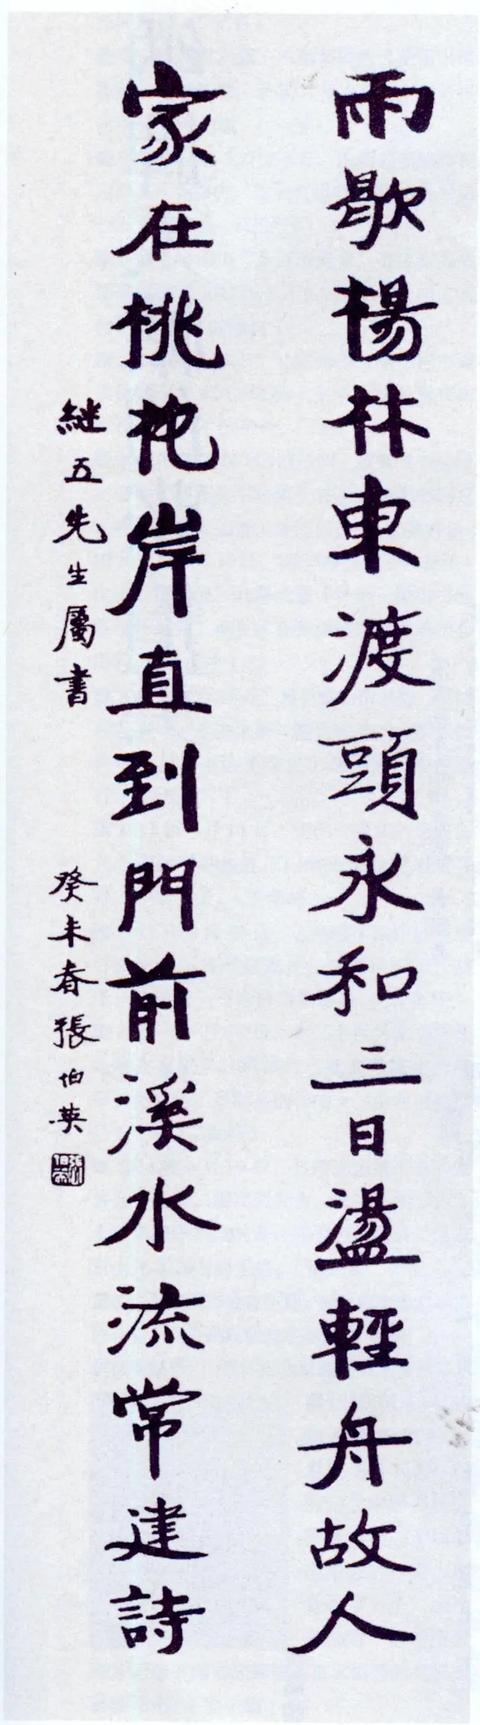 雨歇楊林東渡頭永和三日盪輕舟故人
家在桃花岸直到門前溪水流常建詩
継五先生屬書 癸未春張伯英